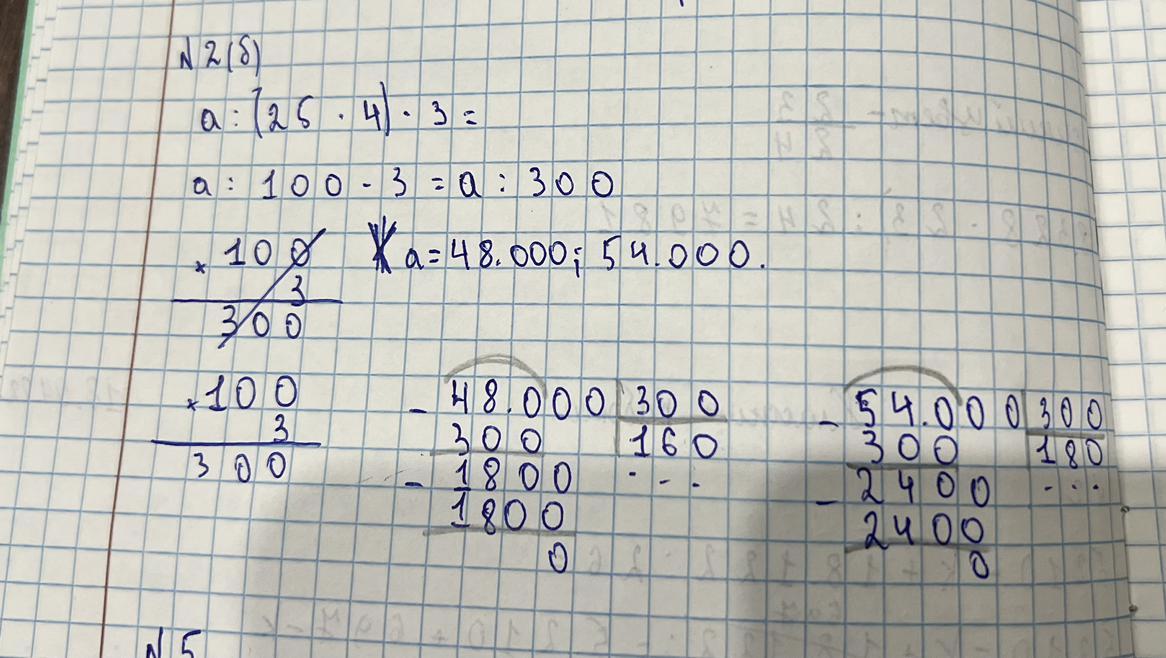 N2(б)
a : (25 · 4) · 3 =
a : 100 · 3 = a : 300
× 100
3
300
a = 48.000; 54.000.
× 100
3
300
- 48.000 300
300 160
- 1800 ...
1800
0
- 54.000 300
300 180
- 2400 ...
2400
0
N5